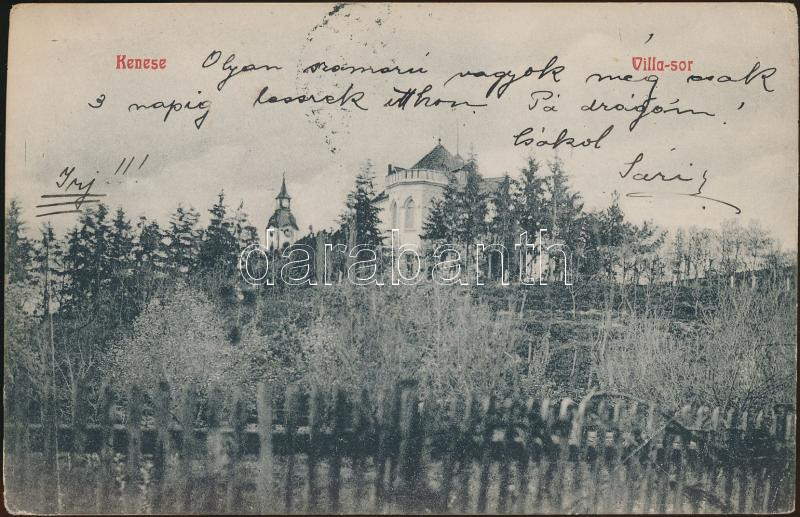 Kenese
Villa-sor
Olyan szomorú vagyok még csak
3 napig leszek itthon. Pá drágám!
Csókol
Sári
Irj !!!
darabanth